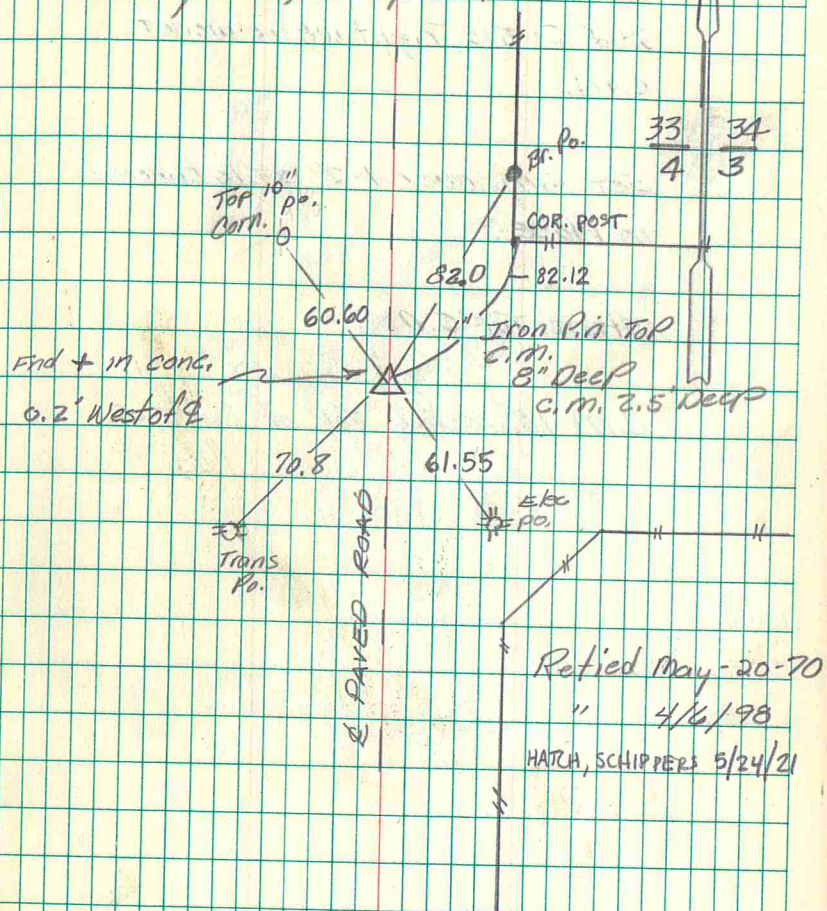 33 34
4 3
Br. Po.
Top 10" po.
Corn.
COR. POST
82.0
82.12
60.60
1" Iron Pin Top
C.M.
8" Deep
C.M. 2.5' Deep
Fnd + in conc.
0.2' West of ℄
70.8
61.55
Elec
po.
Trans
Po.
℄ PAVED ROAD
Retied May-20-70
" 4/6/98
HATCH, SCHIPPERS 5/24/21